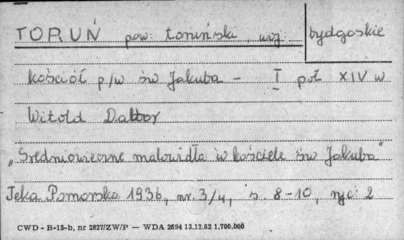 TORUŃ pow. toruński, woj. bydgoskie
kościół p/w św Jakuba – I poł XIV w
Witold Dalbor
„Średniowieczne malowidła w kościele św Jakuba"
Teka Pomorska 1936, nr. 3/4, s. 8-10, ryc. 2
CWD - B-15-b, nr 2827/ZW/P — WDA 2694 13.12.62 1.700.000